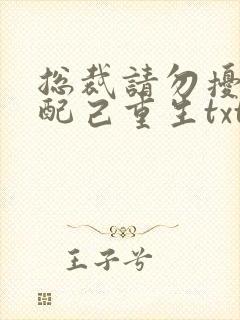 总裁請勿擾
配己重生txt
王子兮